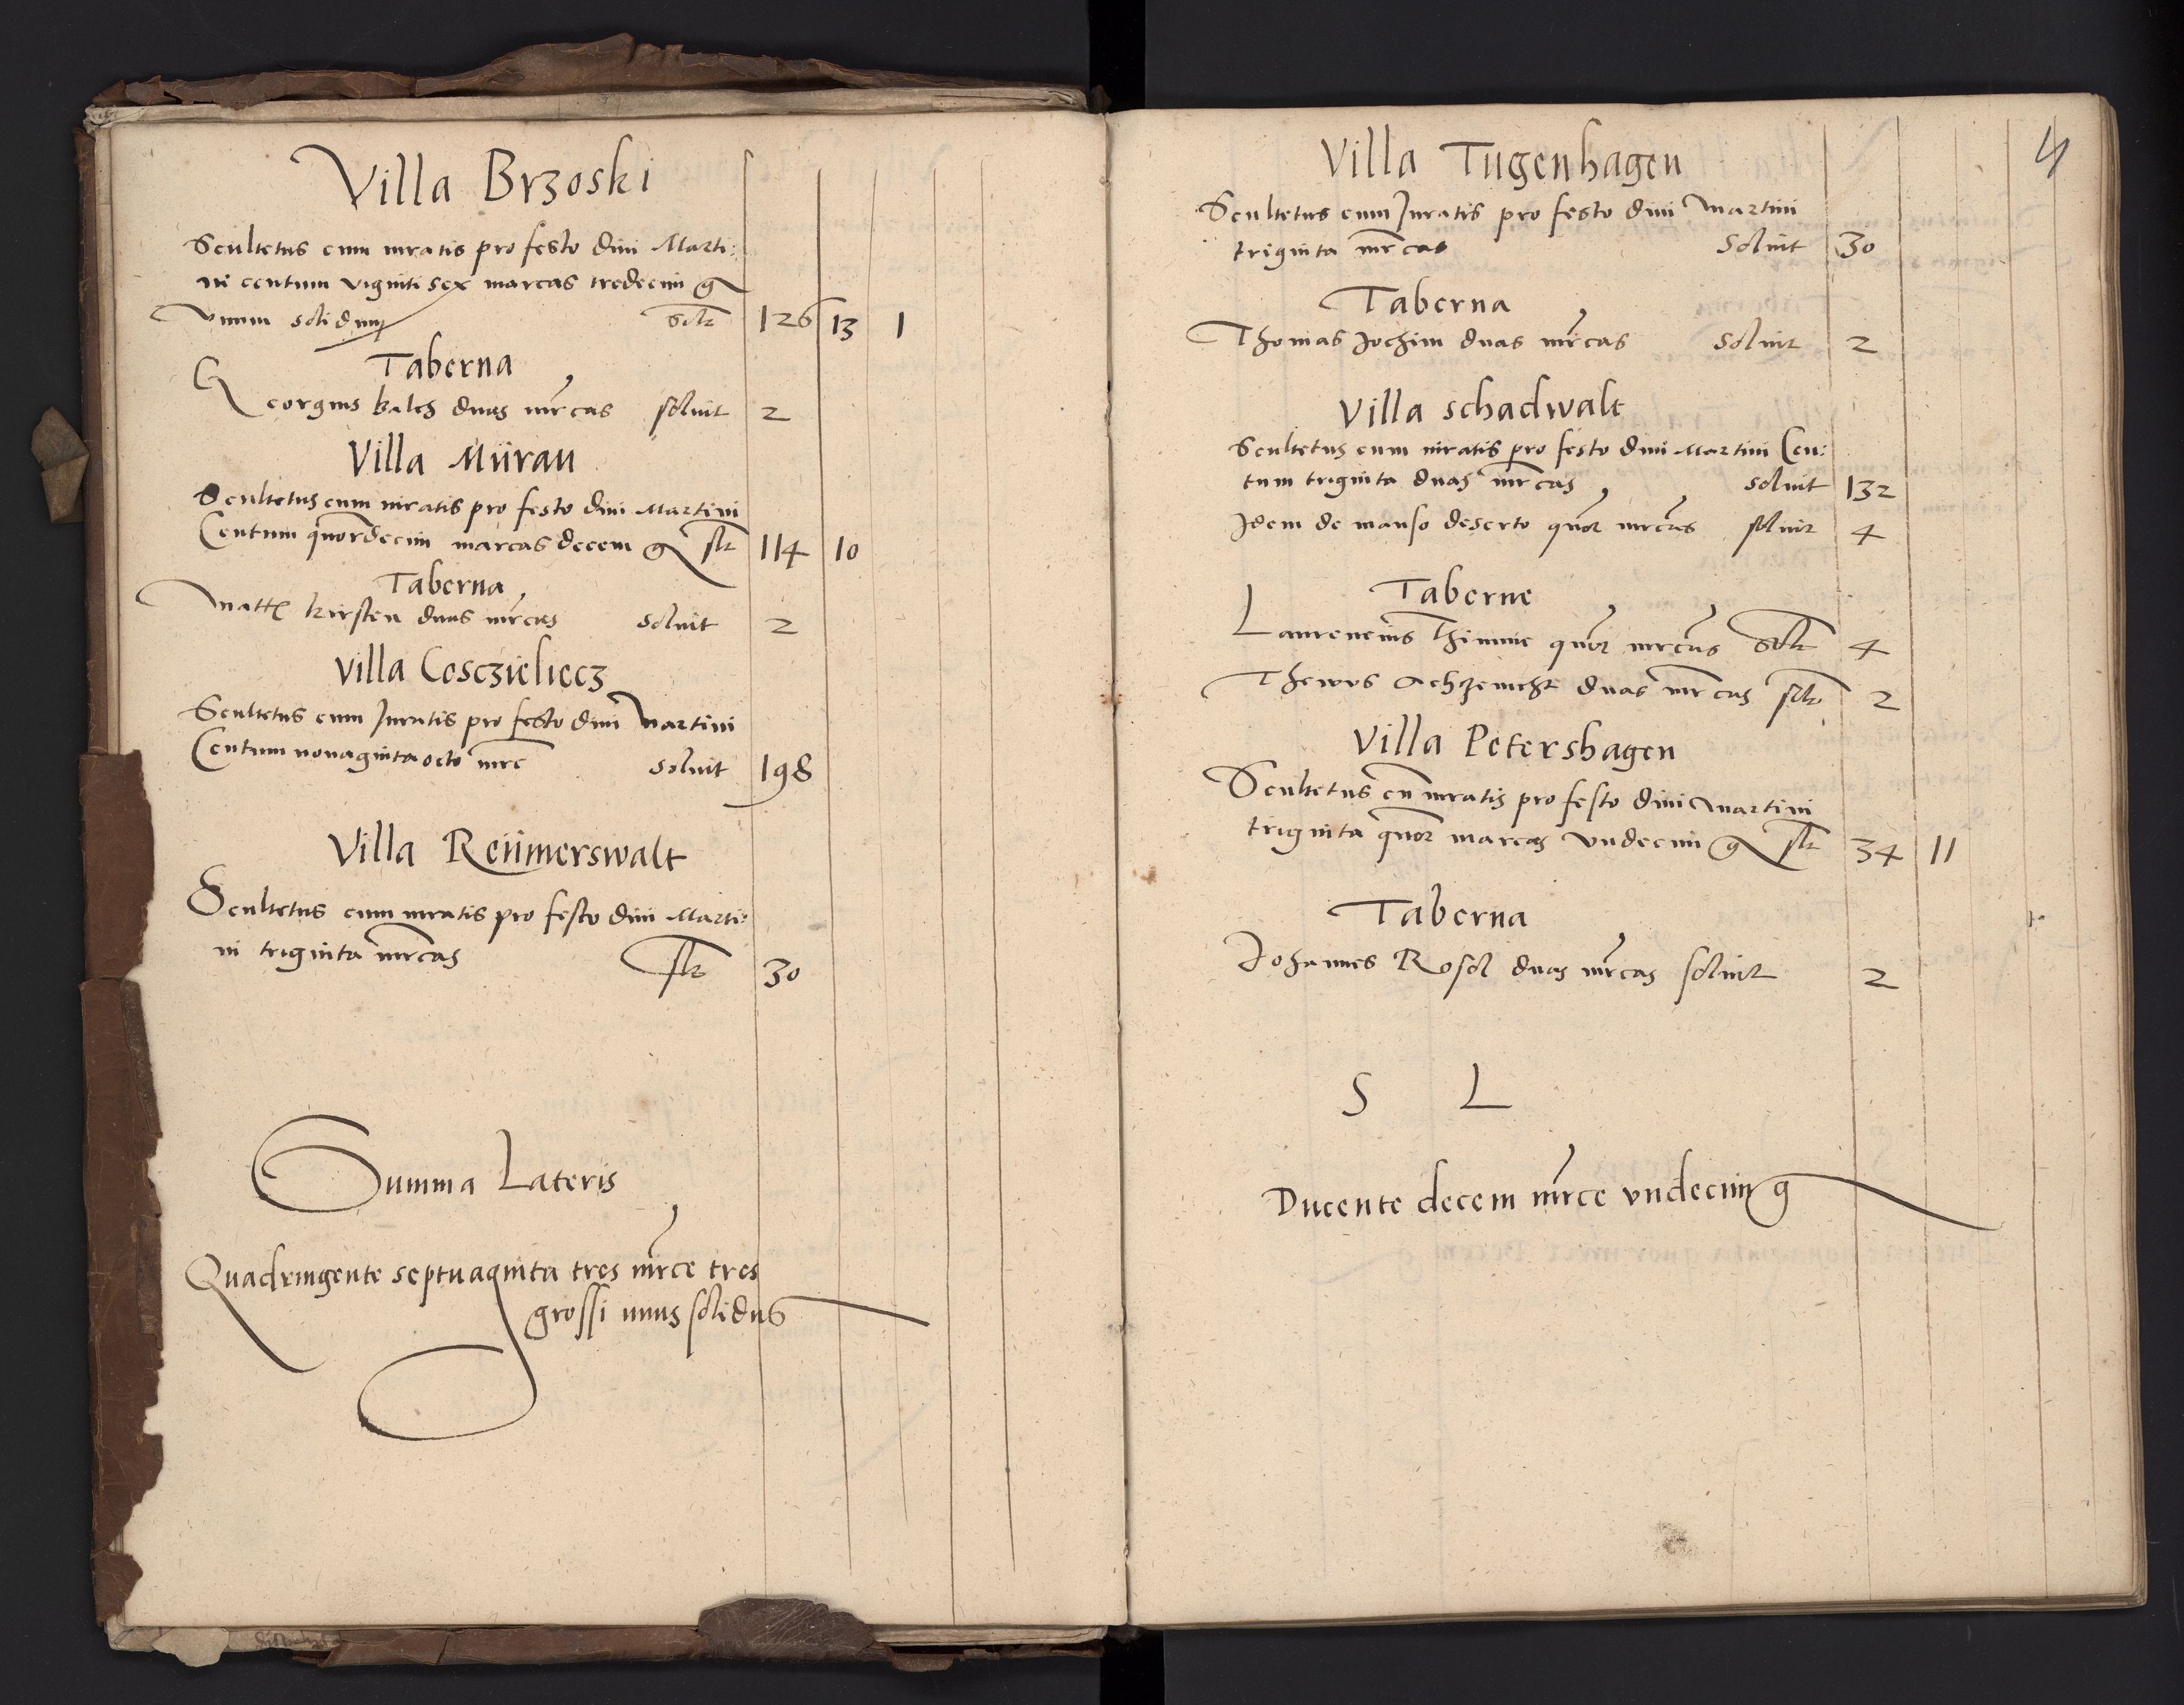 Villa Brzoski
Scultetus cum iuratis pro festo diui Marti:
ni centum viginti sex marcas tredecim g
Vnum solidum solt 126 13 1
Taberna
Georgius kalch duas mrcas soluit 2
Villa Mürau
Scultetus cum iuratis pro festo diui Martini
Centum quordecim marcas decem g slt 114 10
Taberna
Matth kirsten duas mrcas soluit 2
Villa Cosczieliecz
Scultetus cum Juratis pro festo diui Martini
Centum nonaginta octo mrc soluit 198
Villa Reümerswalt
Scultetus cum iuratis pro festo diui Marti:
ni triginta mrcas slt 30
Summa Lateris
Quadringente septuaginta tres mrce tres
grossi unus solidus
4
Villa Tugenhagen
Scultetus cum Juratis pro festo diui Martini
triginta mrcas Soluit 30
Taberna
Thomas Jochim duas mrcas Soluit 2
Villa schadwalt
Scultetus cum iuratis pro festo diui Martini Cen:
tum triginta duas mrcas soluit 132
Idem de manso deserto quor mrcas soluit 4
Taberne
Laurencius Thimme quor mrcas solt 4
Thewus duas mrcas solt 2
Villa Petershagen
Scultetus cu iuratis pro festo diui Martini
triginta quor marcas Vndecim g slt 34 11
Taberna
Johannes Rosol duas mrcas soluit 2
S L
Ducente decem mrce vndecim g